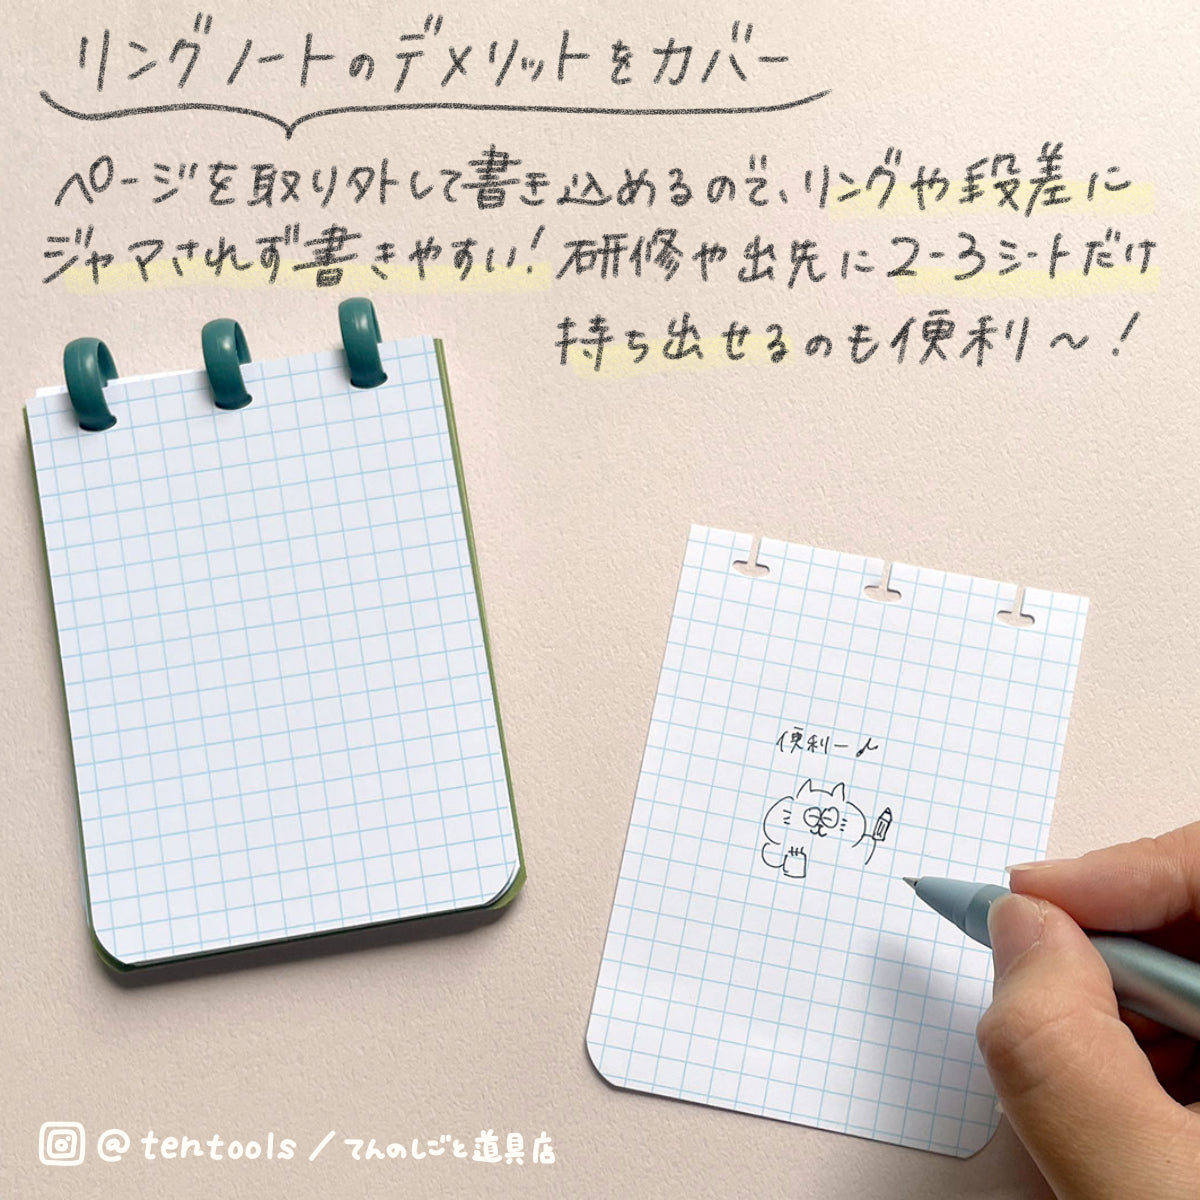 リングノートのデメリットをカバー
ページを取り外して書き込めるので、リングや段差に
ジャマされず書きやすい！研修や出先に2-3シートだけ
持ち出せるのも便利〜！
便利ー♪
@tentools/てんのしごと道具店